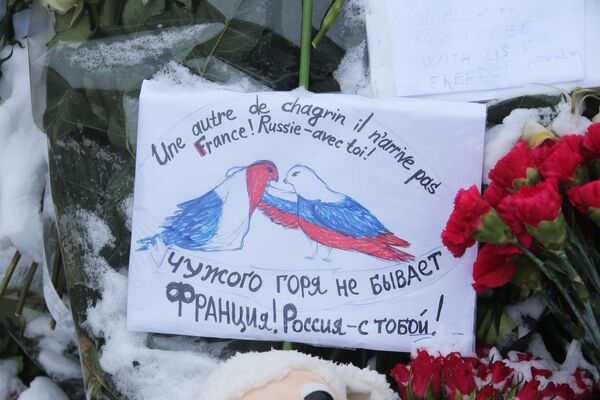 SO MUCH TO
RUSSIA TO BE
WITH US FOR
FREEDOM
Une autre de chagrin il n'arrive pas
France! Russie-avec toi!
чужого горя не бывает
ФРАНЦИЯ! Россия-с тобой!